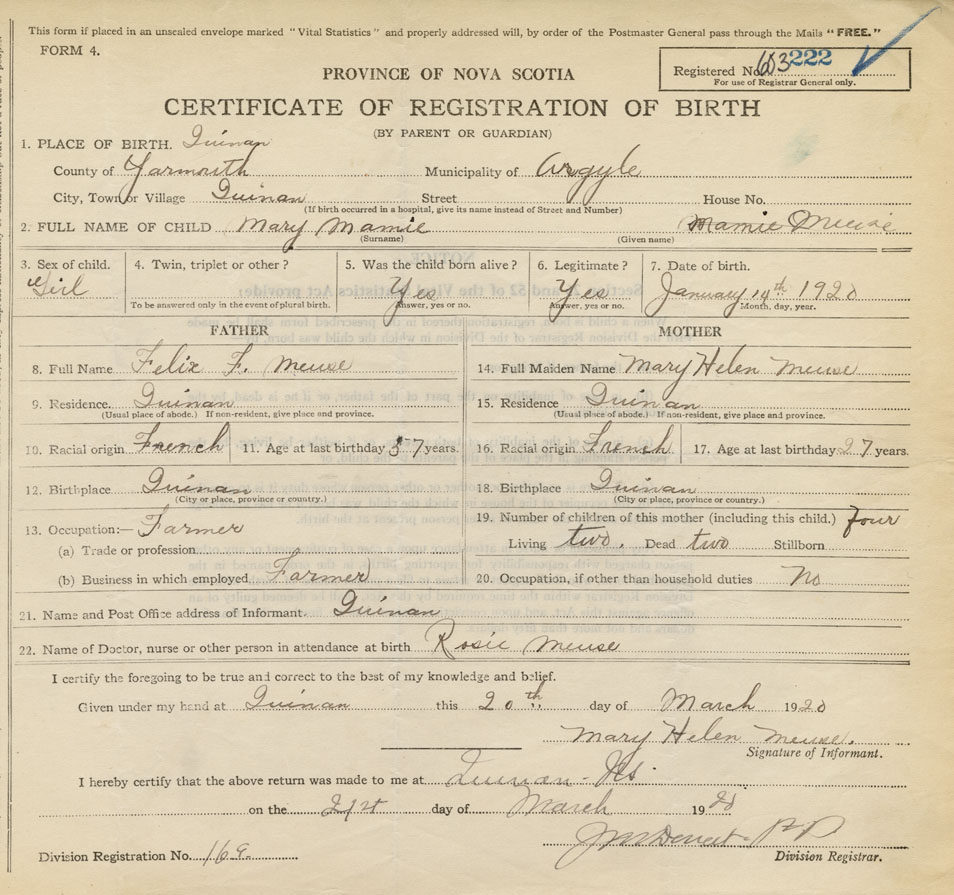 This form if placed in an unsealed envelope marked "Vital Statistics" and properly addressed will, by order of the Postmaster General pass through the Mails "FREE."
FORM 4.
Registered No. 603222
For use of Registrar General only.
PROVINCE OF NOVA SCOTIA
CERTIFICATE OF REGISTRATION OF BIRTH
(BY PARENT OR GUARDIAN)
1. PLACE OF BIRTH. Quinan
County of Yarmouth Municipality of Argyle
City, Town or Village Quinan Street House No.
(If birth occurred in a hospital, give its name instead of Street and Number)
2. FULL NAME OF CHILD Mary Mamie Mamie Meuse
(Surname) (Given name)
3. Sex of child. 4. Twin, triplet or other? 5. Was the child born alive? 6. Legitimate? 7. Date of birth.
Girl Yes Yes January 14th 1920
To be answered only in the event of plural birth. Answer, yes or no. Answer, yes or no. Month, day, year.
FATHER MOTHER
8. Full Name Felix F. Meuse 14. Full Maiden Name Mary Helen Meuse
9. Residence. Quinan 15. Residence Quinan
(Usual place of abode.) If non-resident, give place and province. (Usual place of abode.) If non-resident, give place and province.
10. Racial origin French 11. Age at last birthday 37 years. 16. Racial origin French 17. Age at last birthday 27 years.
12. Birthplace Quinan 18. Birthplace Quinan
(City or place, province or country.) (City or place, province or country.)
13. Occupation:— Farmer 19. Number of children of this mother (including this child.) four
(a) Trade or profession Living two. Dead two Stillborn
(b) Business in which employed Farmer 20. Occupation, if other than household duties No
21. Name and Post Office address of Informant. Quinan
22. Name of Doctor, nurse or other person in attendance at birth Rosie Meuse
I certify the foregoing to be true and correct to the best of my knowledge and belief.
Given under my hand at Quinan this 20th day of March 1920
Mary Helen Meuse.
Signature of Informant.
I hereby certify that the above return was made to me at Quinan
on the 21st day of March 1920
Division Registration No. 169.
Division Registrar.